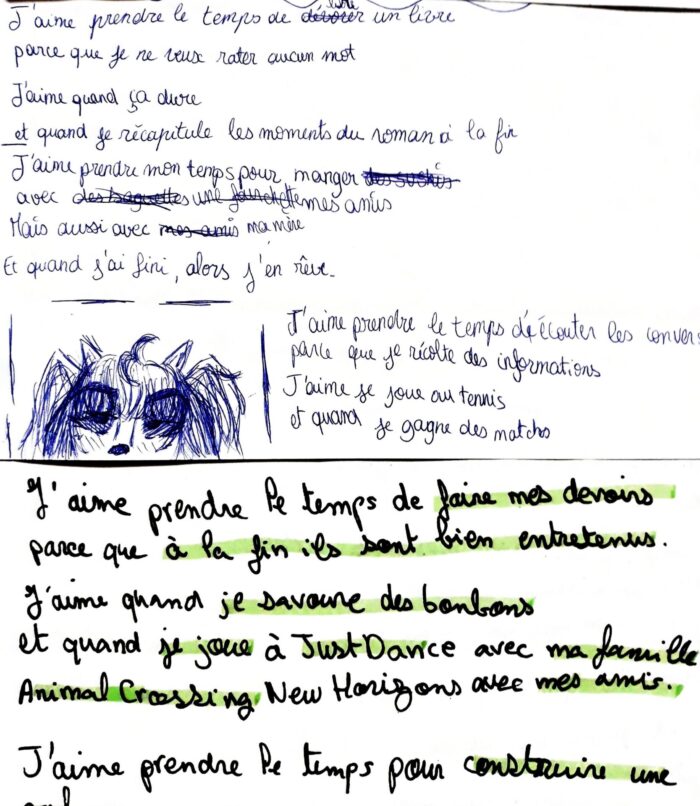 J'aime prendre le temps de dévorer lire un livre
parce que je ne veux rater aucun mot
J'aime quand ça dure
et quand je récapitule les moments du roman à la fin
J'aime prendre mon temps pour manger des sushis
avec des baguettes une fourchette mes amis
Mais aussi avec mes amis ma mère
Et quand j'ai fini, alors j'en rêve.
J'aime prendre le temps d'écouter les conver
parce que je récolte des informations
J'aime je joue au tennis
et quand je gagne des matchs
J'aime prendre le temps de faire mes devoirs
parce que à la fin ils sont bien entretenus.
J'aime quand je savoure des bonbons
et quand je joue à JustDance avec ma famille
Animal Crossing New Horizons avec mes amis.
J'aime prendre le temps pour construire une